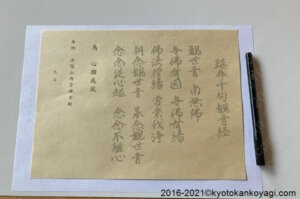 延命十句観音経
観世音 南無佛
与佛有因 与佛有縁
佛法僧縁 常楽我浄
朝念観世音 暮念観世音
念念從心起 念念不離心
為 心願成就
2016-2021©kyotokankoyagi.com